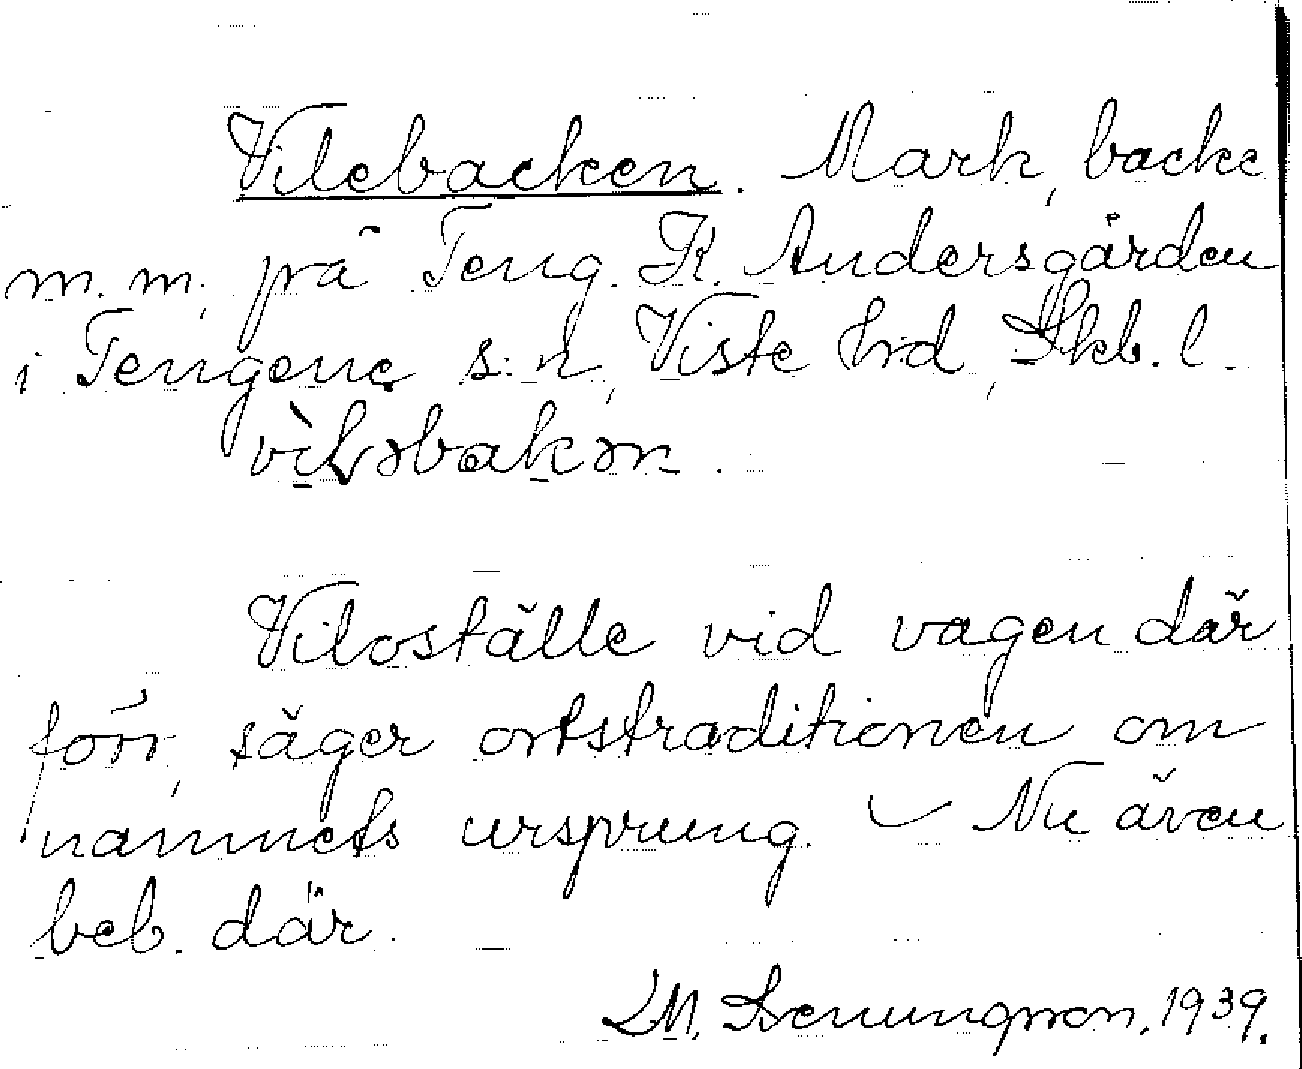 Vilebacken. Mark, backe
m.m. på Teng. K. Andersgården
i Tengene s:n, Viste hrd, Skb. l.
vìlǝbakǝn.
Viloställe vid vägen där
förr, säger ortstraditionen om
namnets ursprung. – Nu även
beb. där.
LM. 1939.